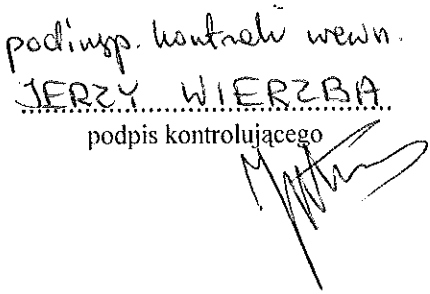 podinsp. kontroli wewn.
JERZY WIERZBA
podpis kontrolującego